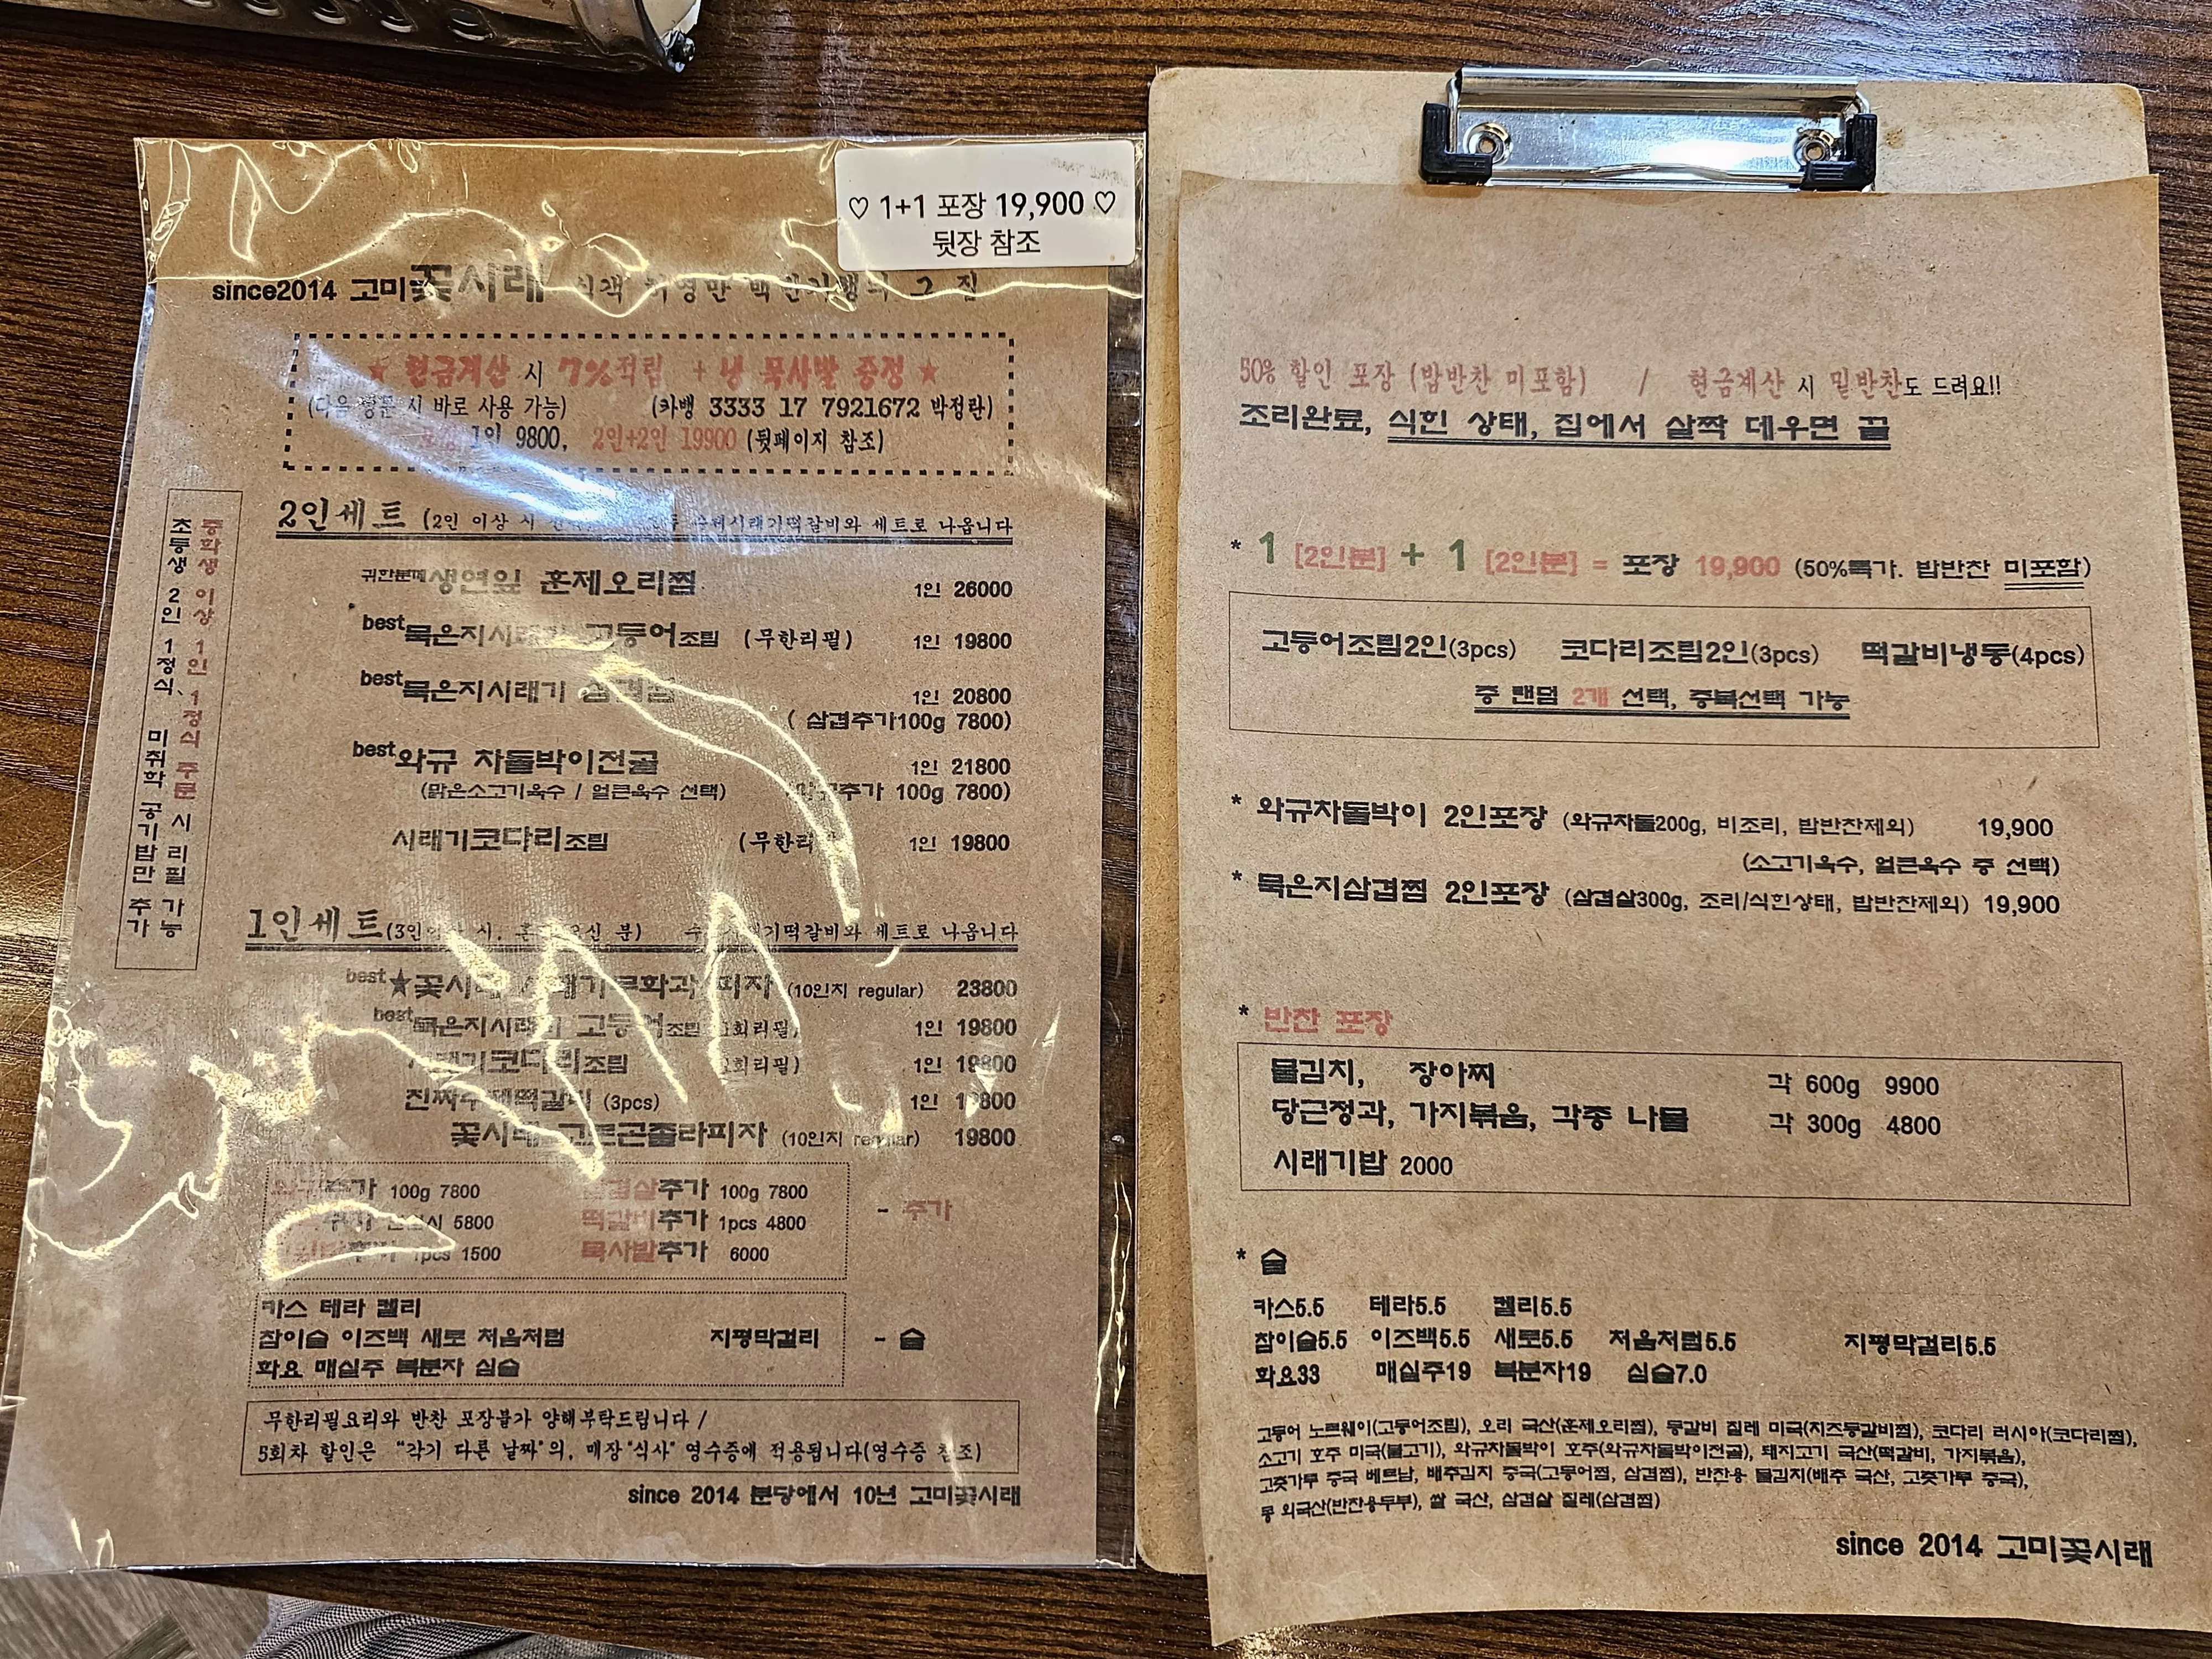 ♡ 1+1 포장 19,900 ♡
뒷장 참조
since2014 고미꽃시래 식객 허영만 백반기행의 그 집
★ 현금계산 시 7%적립 + 냉 묵사발 증정 ★
(다음 방문 시 바로 사용 가능) (카뱅 3333 17 7921672 박정란)
포장 1인 9800, 2인+2인 19900 (뒷페이지 참조)
중학생 이상 1인 1정식 주문 시 리필 가능
초등생 2인 1정식, 미취학 공기밥만 추가
2인세트 (2인 이상 시 수제시래기떡갈비와 세트로 나옵니다
귀한분께 생연잎 훈제오리찜 1인 26000
best 묵은지시래기 고등어조림 (무한리필) 1인 19800
best 묵은지시래기 삼겹찜 1인 20800
( 삼겹추가100g 7800)
best 와규 차돌박이전골 1인 21800
(맑은소고기육수 / 얼큰육수 선택) 추가 100g 7800)
시래기코다리조림 (무한리 1인 19800
1인세트 (3인이상 시, 오신 분) 떡갈비와 세트로 나옵니다
best ★꽃시래 시래기무화과 피자 (10인치 regular) 23800
best 묵은지시래기 고등어조림 1회리필) 1인 19800
시래기코다리조림 1회리필) 1인 19800
진짜수제떡갈비 (3pcs) 1인 19800
꽃시래 고르곤졸라피자 (10인치 regular) 19800
와규추가 100g 7800 삼겹살추가 100g 7800
추가 5800 떡갈비추가 1pcs 4800 - 추가
추가 1pcs 1500 묵사발추가 6000
카스 테라 켈리
참이슬 이즈백 새로 처음처럼 지평막걸리 - 술
화요 매실주 복분자 심술
무한리필요리와 반찬 포장불가 양해부탁드립니다 /
5회차 할인은 "각기 다른 날짜"의, 매장"식사" 영수증에 적용됩니다(영수증 참조)
since 2014 분당에서 10년 고미꽃시래
50% 할인 포장 (밥반찬 미포함) / 현금계산 시 밑반찬도 드려요!!
조리완료, 식힌 상태, 집에서 살짝 데우면 끝
* 1 [2인분] + 1 [2인분] = 포장 19,900 (50%특가. 밥반찬 미포함)
고등어조림2인(3pcs) 코다리조림2인(3pcs) 떡갈비냉동(4pcs)
중 랜덤 2개 선택, 중복선택 가능
* 와규차돌박이 2인포장 (와규차돌200g, 비조리, 밥반찬제외) 19,900
(소고기육수, 얼큰육수 중 선택)
* 묵은지삼겹찜 2인포장 (삼겹살300g, 조리/식힌상태, 밥반찬제외) 19,900
* 반찬 포장
물김치, 장아찌 각 600g 9900
당근정과, 가지볶음, 각종 나물 각 300g 4800
시래기밥 2000
* 술
카스5.5 테라5.5 켈리5.5
참이슬5.5 이즈백5.5 새로5.5 처음처럼5.5 지평막걸리5.5
화요33 매실주19 복분자19 심술7.0
고등어 노르웨이(고등어조림), 오리 국산(훈제오리찜), 등갈비 칠레 미국(치즈등갈비찜), 코다리 러시아(코다리찜),
소고기 호주 미국(불고기), 와규차돌박이 호주(와규차돌박이전골), 돼지고기 국산(떡갈비, 가지볶음),
고춧가루 중국 베트남, 배추김치 중국(고등어찜, 삼겹찜), 반찬용 물김치(배추 국산, 고춧가루 중국),
콩 외국산(반찬용두부), 쌀 국산, 삼겹살 칠레(삼겹찜)
since 2014 고미꽃시래